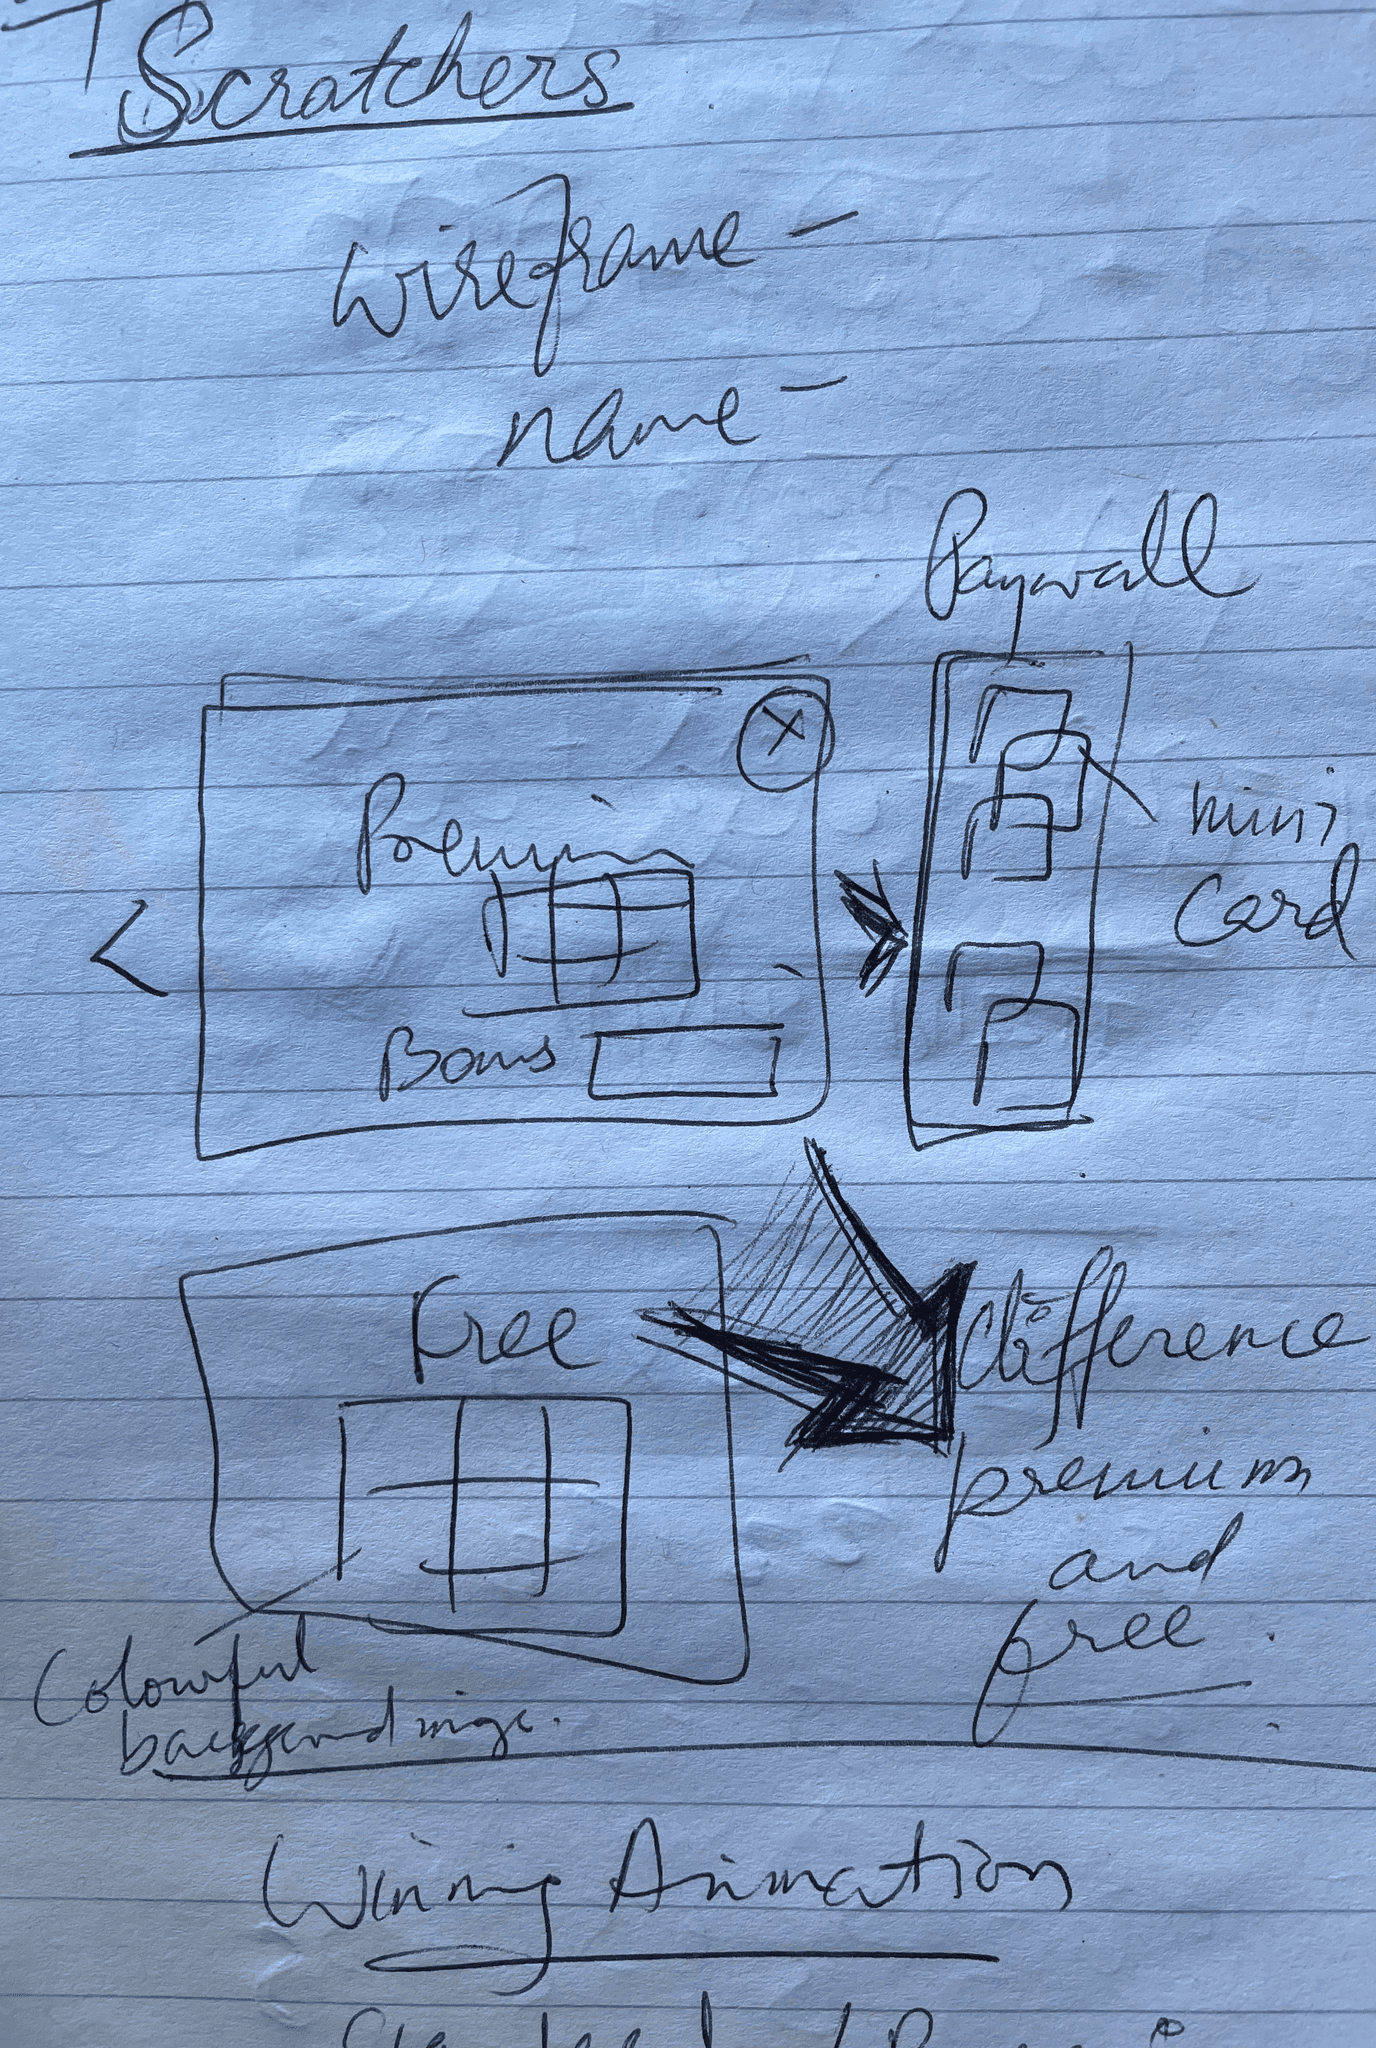 Scratchers
Wireframe -
name -
Paywall
X
Premium
mini
card
Bonus
Free
difference
premium
and
free.
Colourful
background image.
Winning Animation